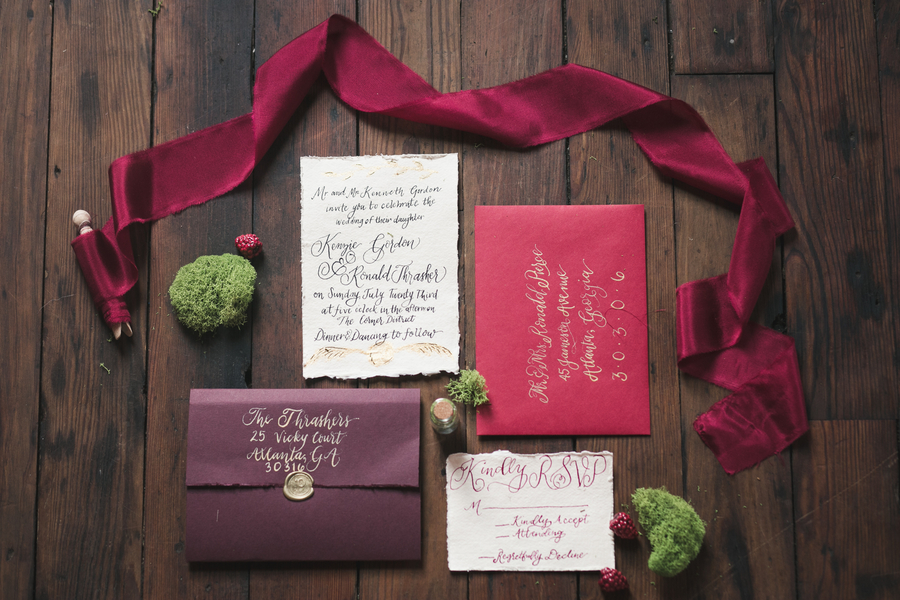 Mr and Mrs Kenneth Gordon
invite you to celebrate the
wedding of their daughter
Kenzie Gordon
&
Ronald Thrasher
on Sunday, July Twenty Third
at five o'clock in the afternoon
The Corner District
Dinner & Dancing to follow
Mr. & Mrs. Ronald
45 Jameson Avenue
Atlanta, Georgia
3.0.3.0.6
The Thrashers
25 Vicky Court
Atlanta, GA
30316
Kindly RSVP
M
Kindly Accept
Attending
Regretfully Decline